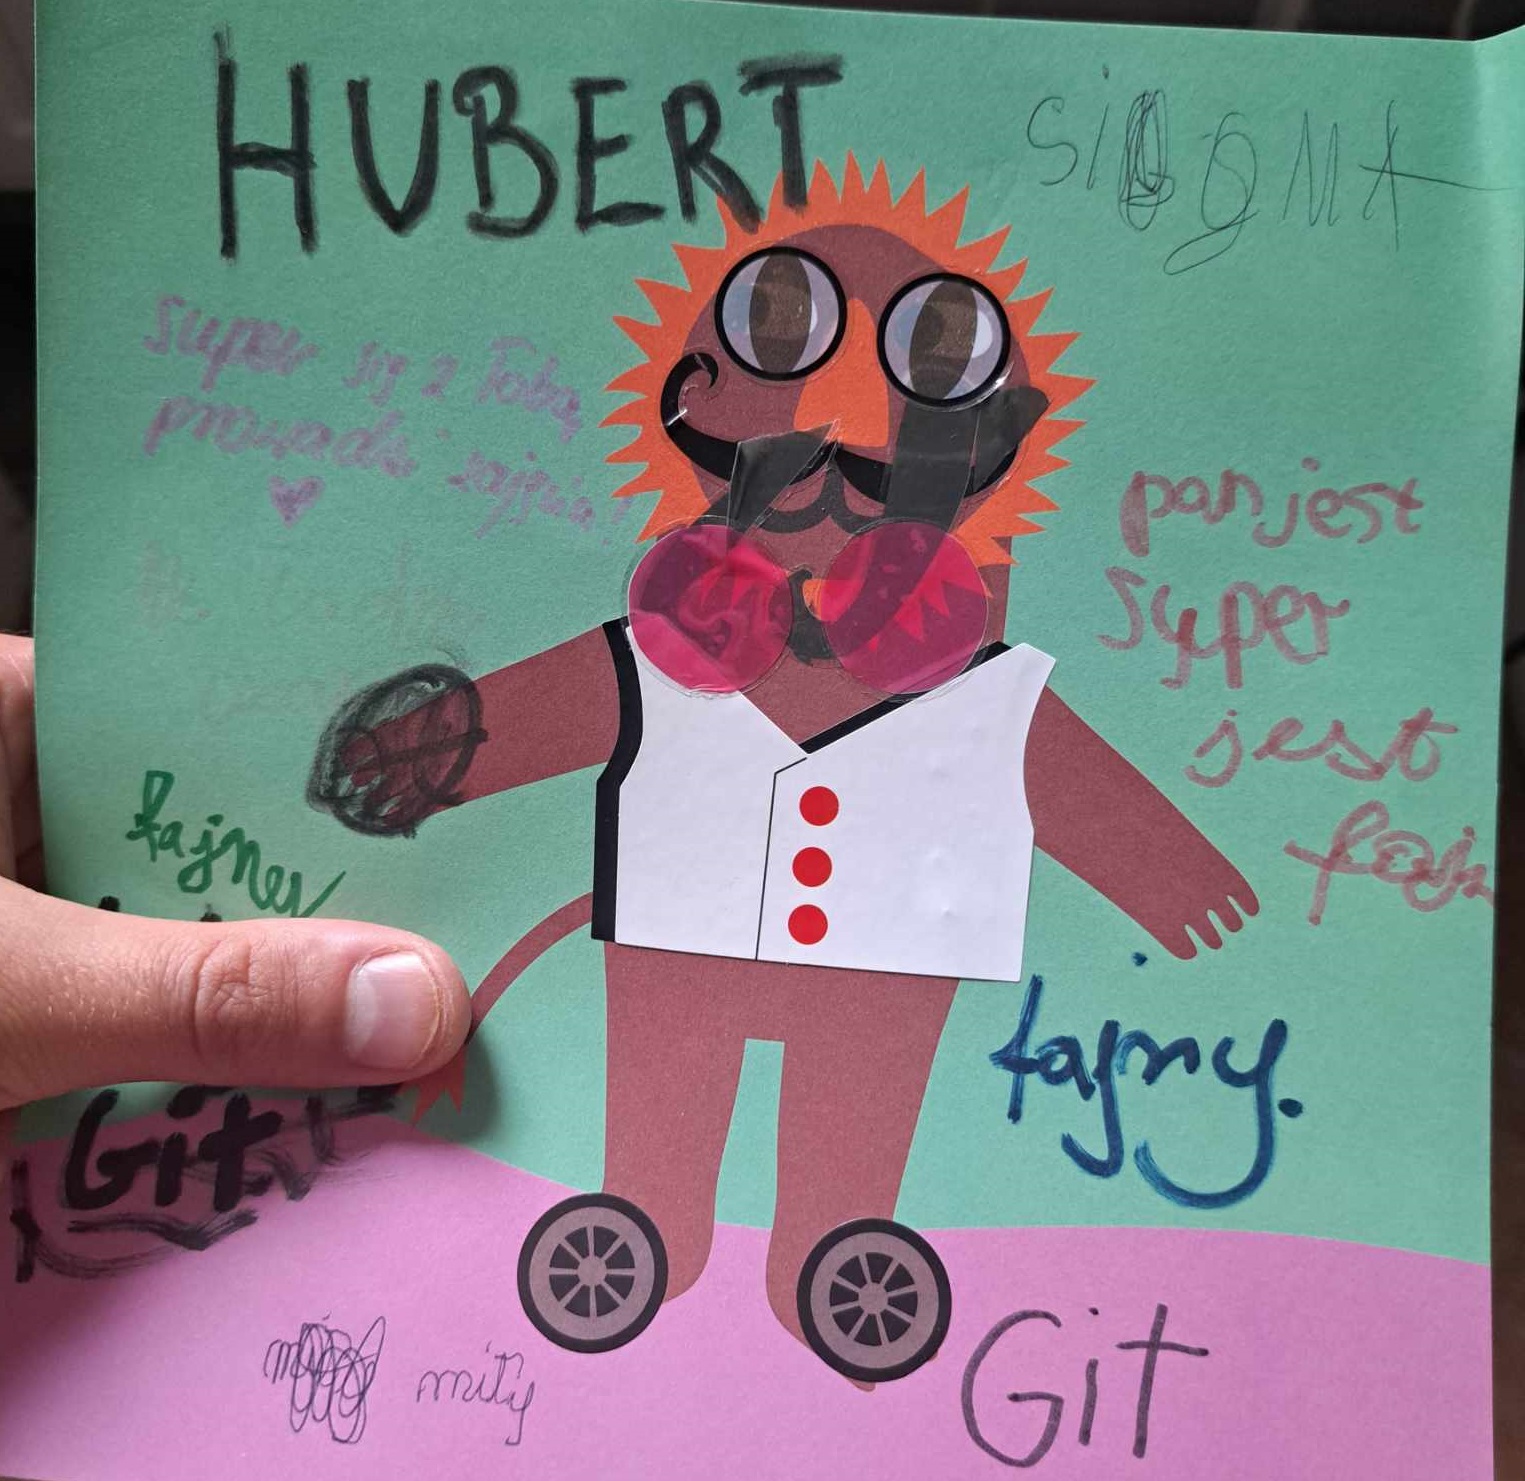 HUBERT
SIGMA
super się z Tobą
prowadzi zajęcia!
pan jest
super
jest
fajn
fajny
fajny.
Git
miły
Git